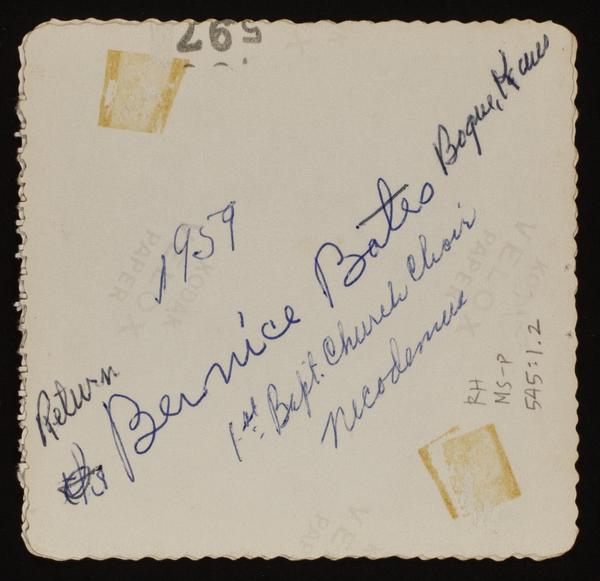 597
1959
Return
to Bernice Bates Bogue, Kans
1st. Bapt. Church Choir
Nicodemus
RH
MS-P
545:1.2
KODAK
VELOX
PAPER
VELOX
PAPER